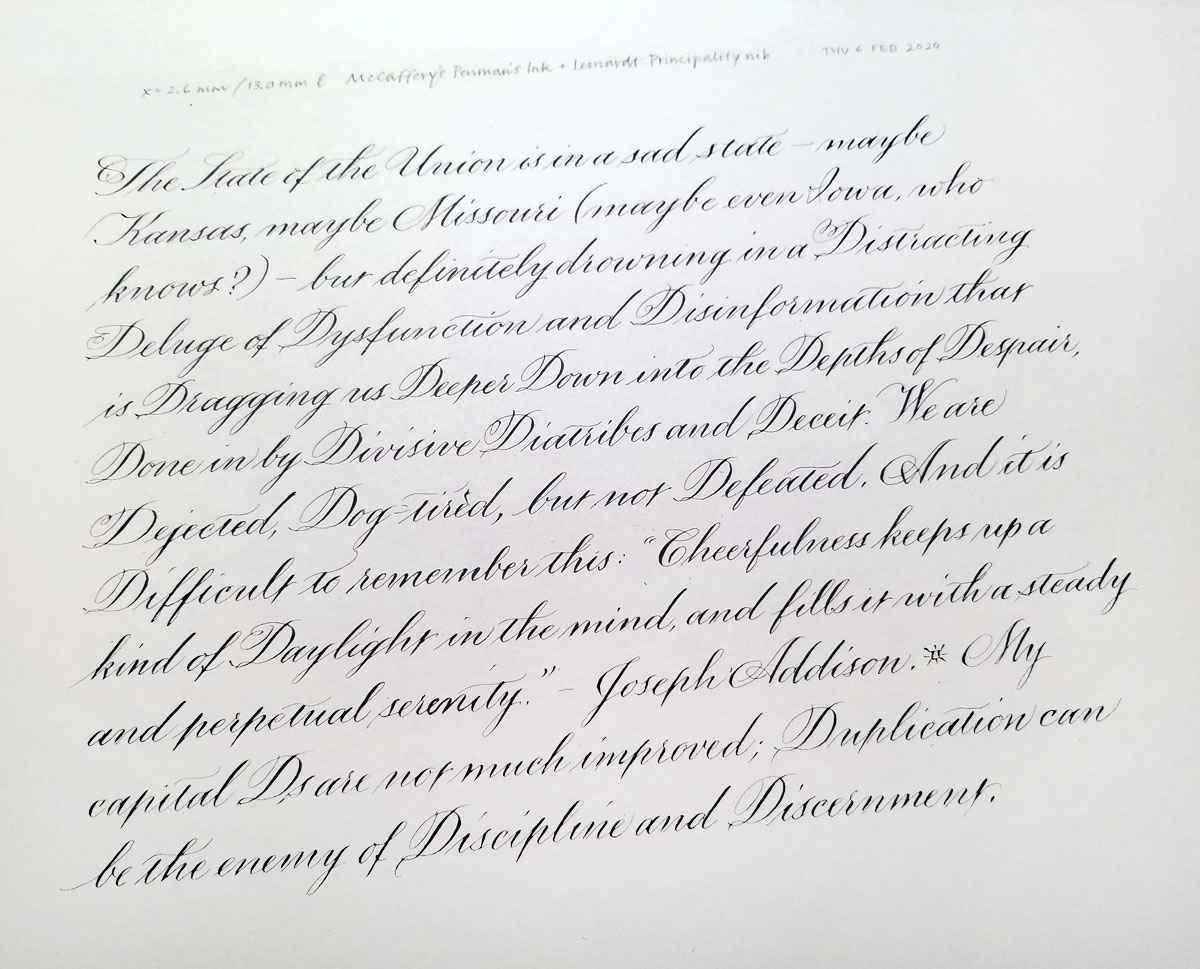 x = 2.6 mm / 13.0 mm l McCaffery's Penman's Ink + Leonardt Principality nib THU 6 FEB 2020
The State of the Union is in a sad state – maybe
Kansas, maybe Missouri (maybe even Iowa, who
knows?) – but definitely drowning in a Distracting
Deluge of Dysfunction and Disinformation that
is Dragging us Deeper Down into the Depths of Despair,
Done in by Divisive Diatribes and Deceit. We are
Dejected, Dog-tired, but not Defeated. And it is
Difficult to remember this: "Cheerfulness keeps up a
kind of Daylight in the mind, and fills it with a steady
and perpetual serenity." – Joseph Addison. ※ My
capital Ds are not much improved; Duplication can
be the enemy of Discipline and Discernment.